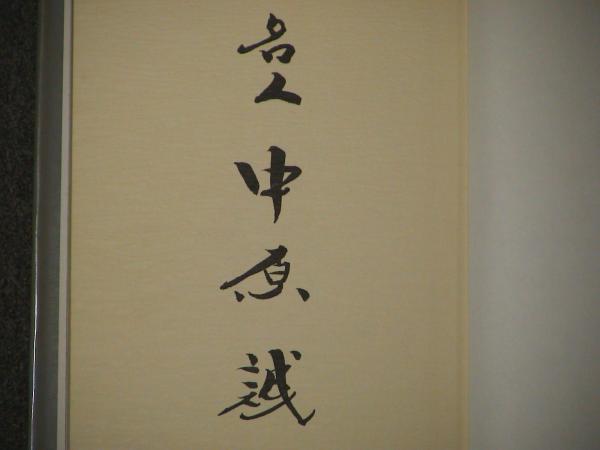 名人 中原誠